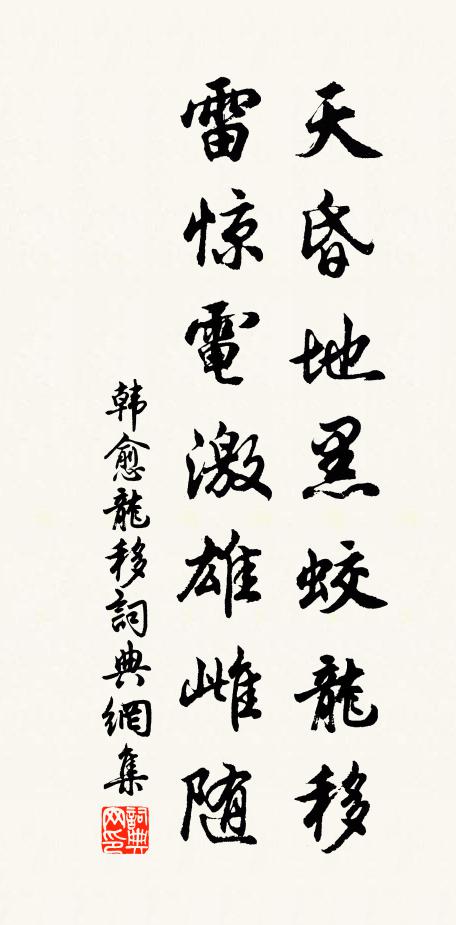 天昏地黑蛟龍移
雷惊電激雄雌随
韩愈龍移詞典網集
詞典網印